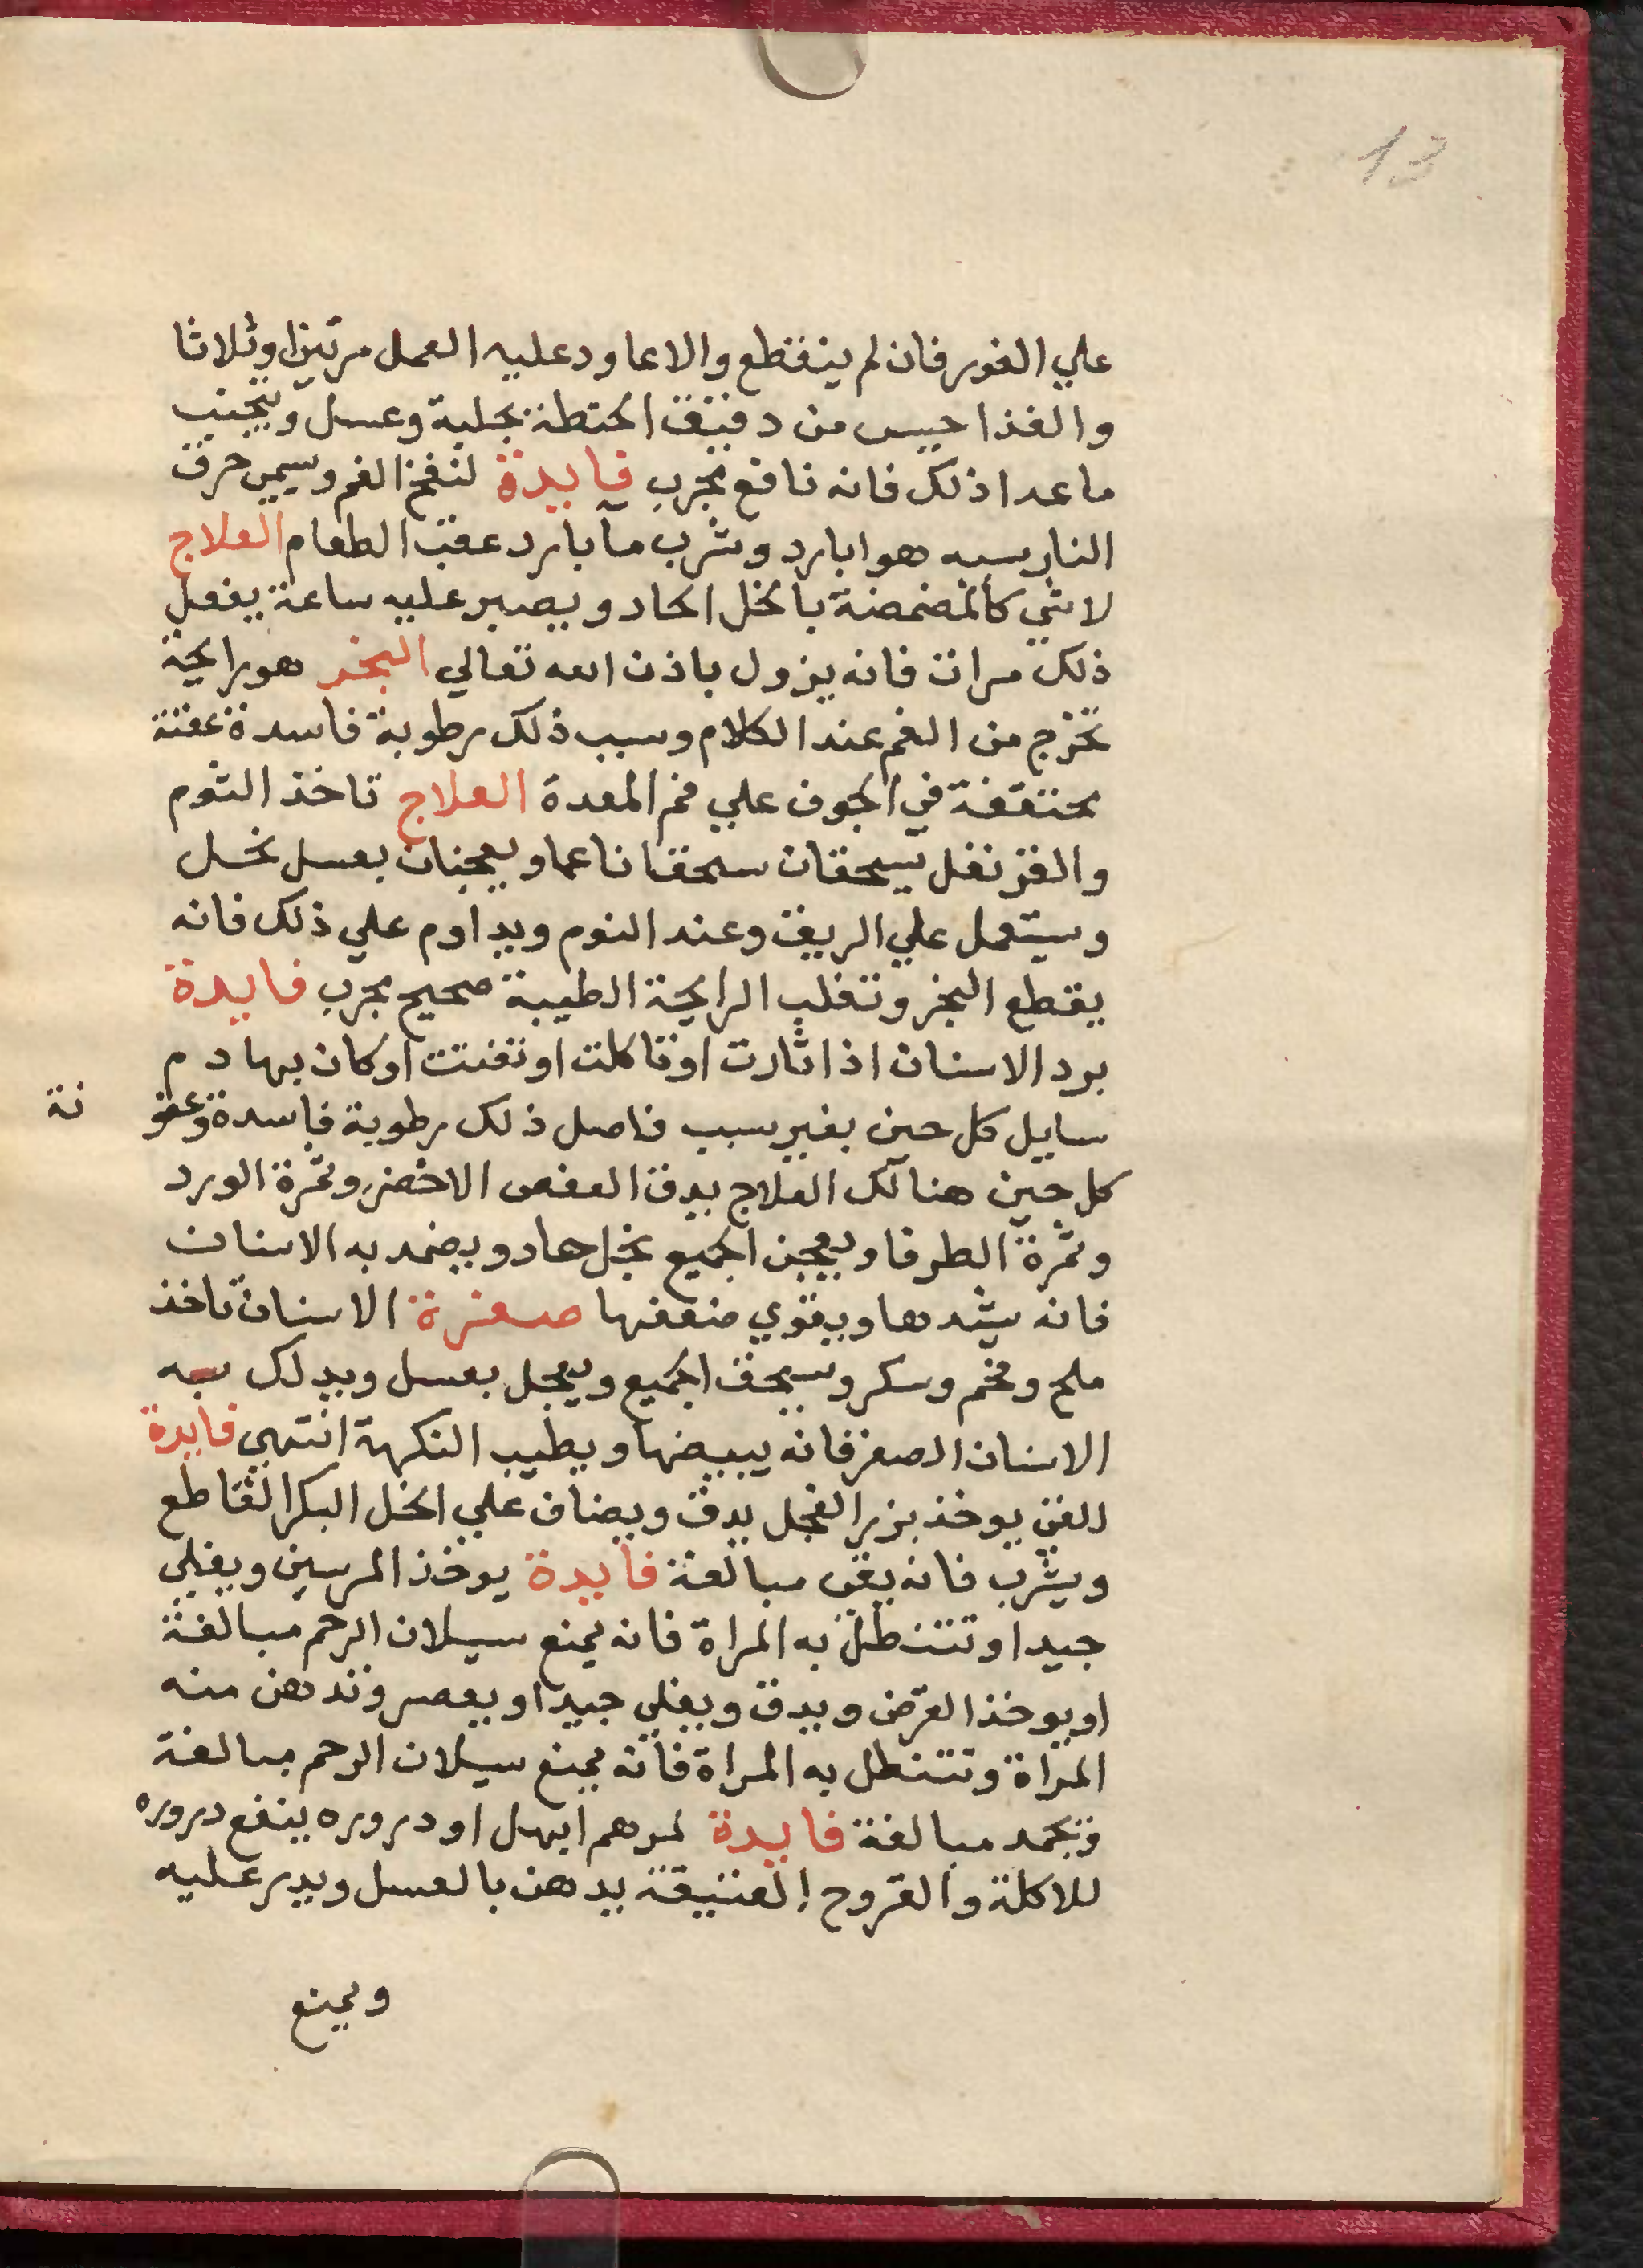 13
علي الفور فان لم ينقطع والا عاود عليه العمل مرتين او ثلاثا
والغذا حيس من دقيق الحنطة بحلبة وعسل ويجتنب
ما عدا ذلك فانه نافع مجرب فايدة لنفخ الفم ويسمي حرق
النار سببه هوا بارد وشرب مآ بارد عقب الطعام العلاج
لا شي كالمضمضة بالخل الحاد ويصبر عليه ساعة يفعل
ذلك مرات فانه يزول باذن الله تعالي البخر هو رايحة
تخرج من الفم عند الكلام وسبب ذلك رطوبة فاسدة عفنة
محتقفة في الجوف علي فم المعدة العلاج تاخذ الثوم
والقرنفل يسحقان سحقا ناعما ويعجنان بعسل نحل
ويستعمل علي الريق وعند النوم ويداوم علي ذلك فانه
يقطع البخر وتغلب الرايحة الطيبة صحيح مجرب فايدة
برد الاسنان اذا ثارت او تاكلت او تفتت او كان بها دم
سايل كل حين بغير سبب فاصل ذلك رطوبة فاسدة وعفو نة
كل حين هنالك العلاج يدق العفص الاخضر وثمرة الورد
وثمرة الطرفا ويعجن الجميع بخل حاد ويضمد به الاسنان
فانه يشدها ويقوي ضعفها صفرة الاسنان تاخذ
ملح وفحم وسكر ويسحق الجميع ويعجل بعسل ويدلك به
الاسنان الصفر فانه يبيضها ويطيب النكهة انتهي فايدة
للقي يوخذ بزر الفجل يدق ويضاف علي الخل البكر القاطع
ويشرب فانه يقي مبالغة فايدة يوخذ المرسين ويغلي
جيدا وتتنطل به المراة فانه يمنع سيلان الرحم مبالغة
او يوخذ القرض ويدق ويغلي جيدا ويعصر وتدهن منه
المراة وتتنطل به المراة فانه يمنع سيلان الرحم مبالغة
وتجمد مبالغة فايدة لمرهم ابهل او دروره ينفع دروره
للاكلة والقروح العتيقة يدهن بالعسل ويدر عليه
ويمنع